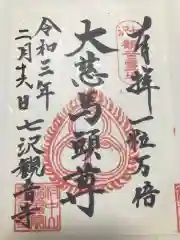 有難一粒万倍
大慈馬頭尊
令和三年
二月十六日七沢観音寺